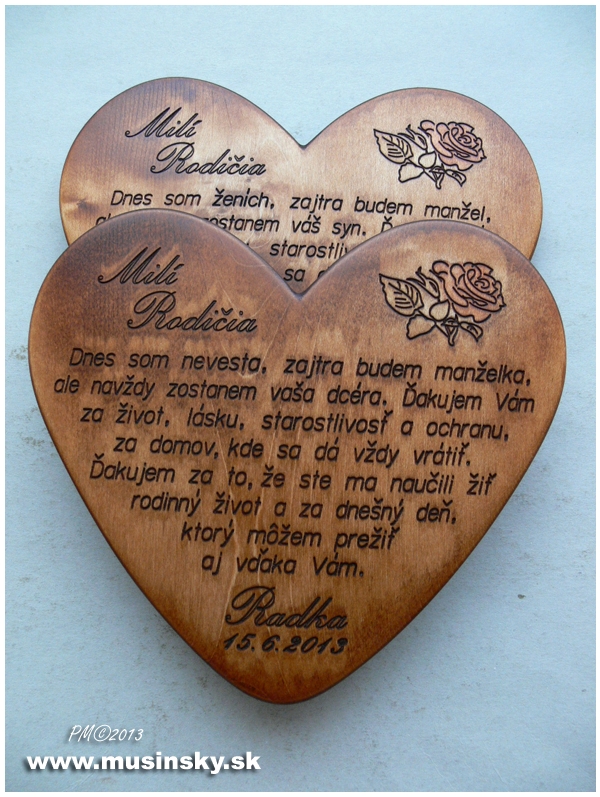 Milí
Rodičia
Dnes som ženích, zajtra budem manžel,
zostanem váš syn.
starostliv
sa
Milí
Rodičia
Dnes som nevesta, zajtra budem manželka,
ale navždy zostanem vaša dcéra. Ďakujem Vám
za život, lásku, starostlivosť a ochranu,
za domov, kde sa dá vždy vrátiť.
Ďakujem za to, že ste ma naučili žiť
rodinný život a za dnešný deň,
ktorý môžem prežiť
aj vďaka Vám.
Radka
15.6.2013
PM©2013
www.musinsky.sk